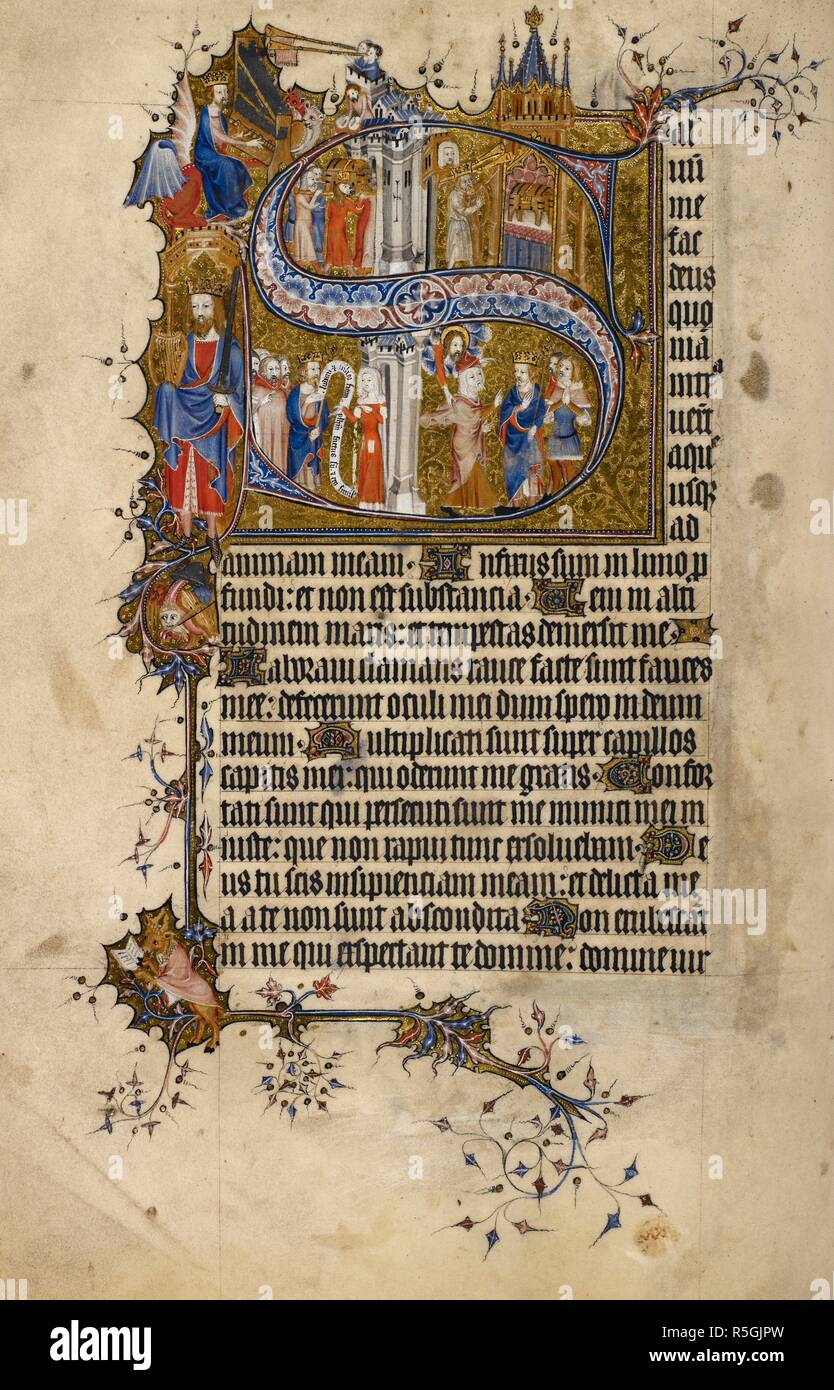 al
uū
me
fac
deus
quo
mā
intᵃ
uerūt
aque
usqꝫ
ad
animam meam · Infixus sum in limo p
fundi: et non est substancia · Veni in alti
tudinem maris: et tempestas demersit me
Laboraui clamans rauce facte sunt fauces
mee: defecerunt oculi mei dum spero in deum
meum · Multiplicati sunt super capillos
capitis mei: qui oderunt me gratis · Confor
tati sunt qui persecuti sunt me inimici mei in
iuste: que non rapui tunc exsoluebam · De
us tu scis insipienciam meam: et delicta me
a a te non sunt abscondita · Non erubescāt
in me qui exspectant te domine: domine uir
alamy
a
alamy
a
a
alamy
Image ID: R5GJPW
www.alamy.com